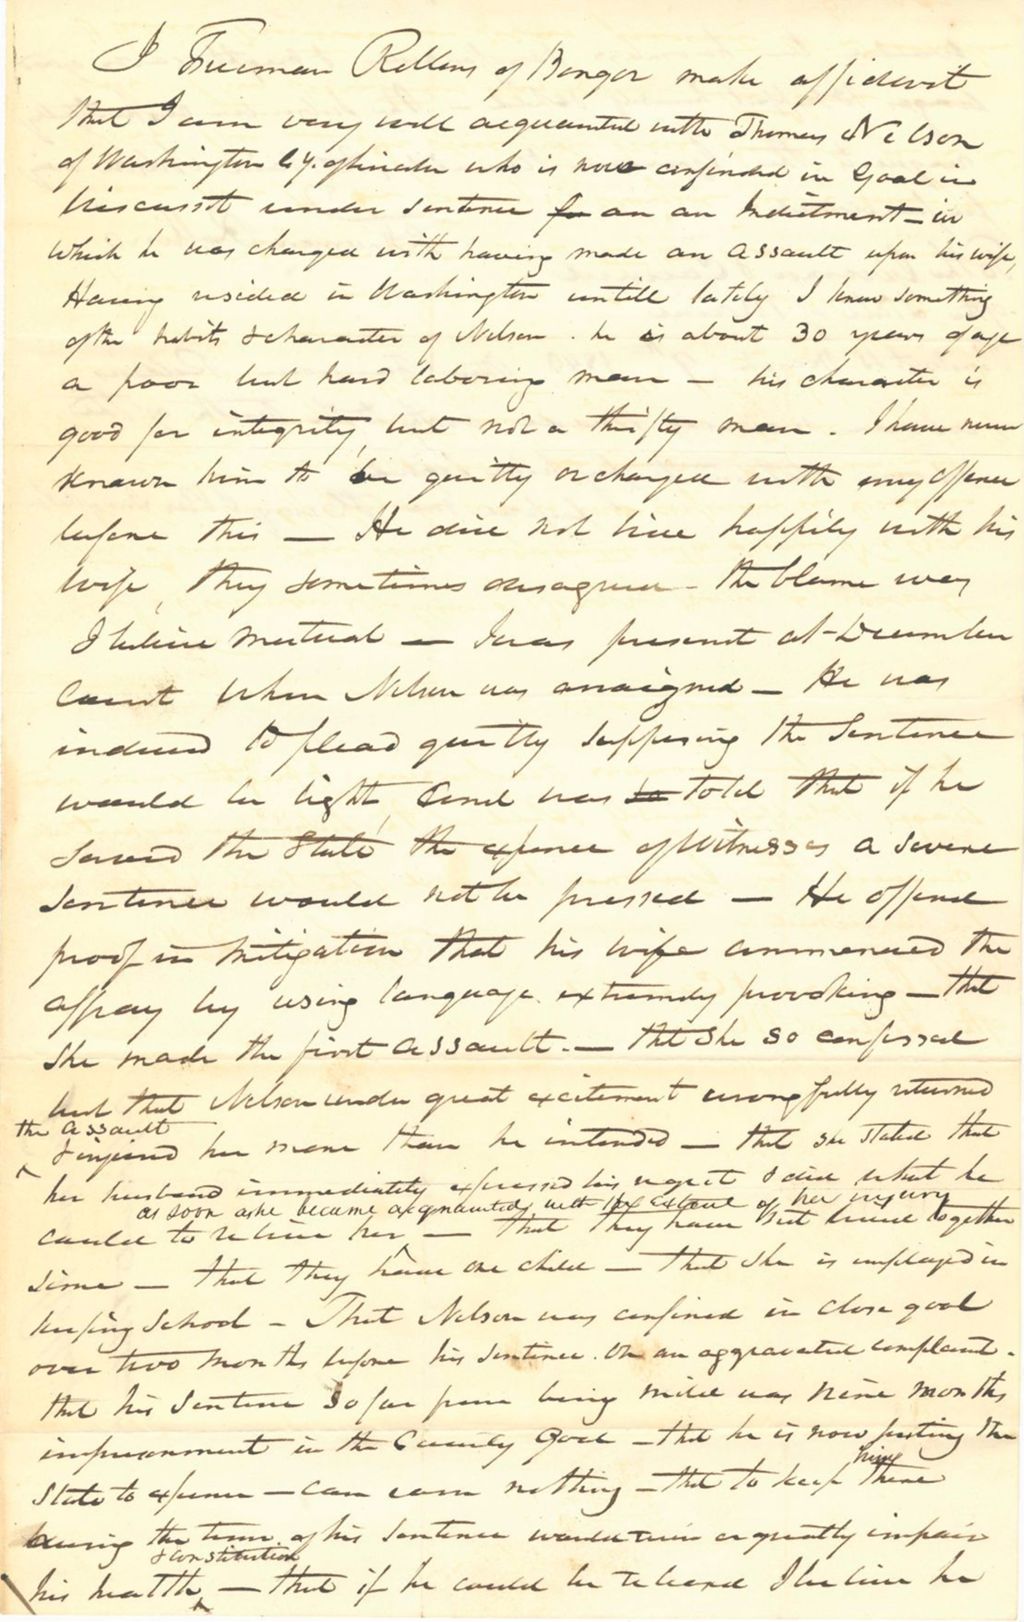 I Freeman Rollins of Bangor make affidavit
that I am very well acquainted with Thomas Nelson
of Washington who is now confined in Goal in
Wiscasset under sentence for on an Indictment – in
which he was charged with having made an assault upon his wife,
Having resided in Washington untill lately I know something
of the habits & character of Nelson. he is about 30 years of age
a poor but hard laboring man – his character is
good for integrity, but not a thrifty man. I have never
known him to be guilty or charged with any offence
before this – He did not live happily with his
wife, they sometimes disagreed – the blame was
I believe mutual – I was present at December
Court when Nelson was arraigned – He was
induced to plead guilty supposing the sentence
would be light, and was so told that if he
saved the State the expence of witnesses a severe
sentence would not be pressed – He offered
proof in mitigation that his wife commenced the
affray by using language extremely provoking – that
she made the first assault. – that she so confessed
but that Nelson under great excitement wrongfully returned
the assault
& injured her more than he intended – that she stated that
her husband immediately expressed his regret & did what he
as soon as he became acquainted with the extent of her injury
could to relieve her – that they have not lived together
since – that they have one child – that she is employed in
keeping School – That Nelson was confined in close goal
over two months before his sentence. On an aggravated complaint.
that his sentence so far from being mild was nine months
imprisonment in the County Goal – that he is now putting the
State to expence – can earn nothing – that to keep there
him
during the term of his sentence would ruin or greatly impair
& constitution
his health – that if he could be released I believe he